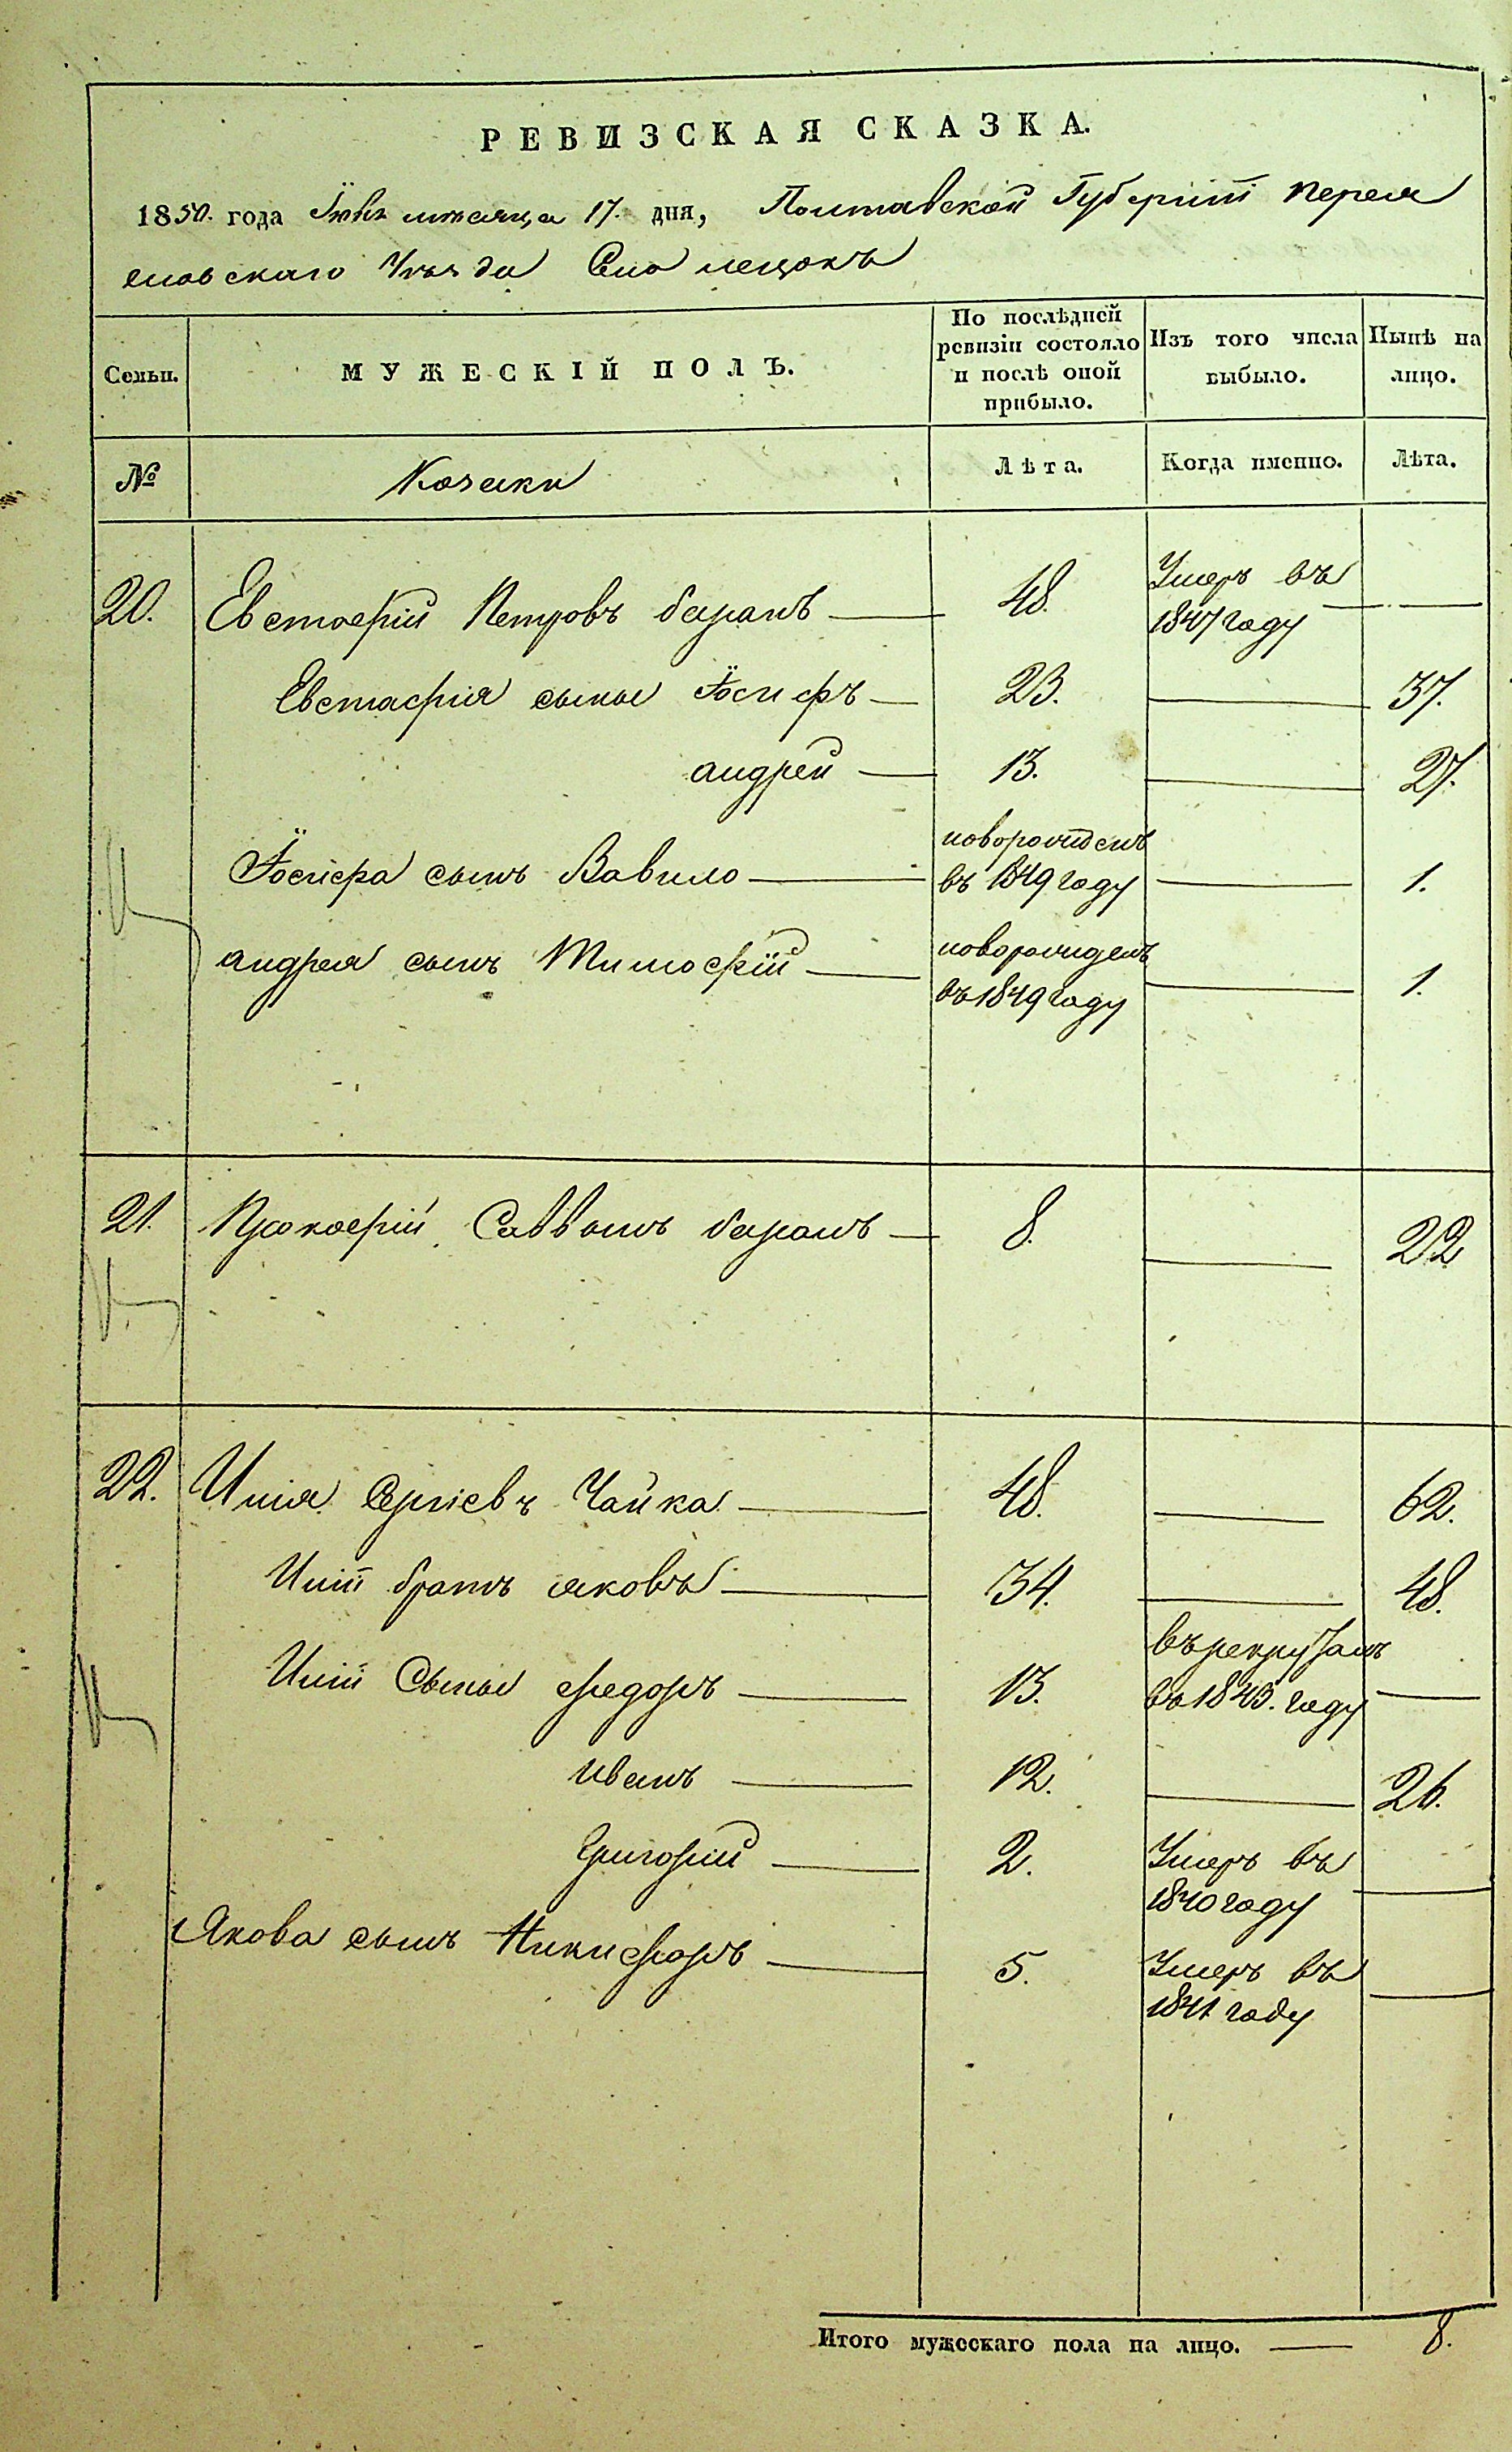 РЕВИЗСКАЯ СКАЗКА.
1850. года Їюня мѣсяца 17. дня, Полтавской Губерніи Перея
славскаго Уѣзда Село
Семьи.
МУЖЕСКІЙ ПОЛЪ.
По послѣдней
ревизіи состояло
и послѣ оной
прибыло.
Изъ того числа
выбыло.
Нынѣ на
лицо.
№
Козаки
Лѣта.
Когда именно.
Лѣта.
20. Евстафій Петровъ баранъ — 48. Умеръ въ
1847 году —
Евстафія сыны Їосифъ — 23. — 37.
андрей — 13. — 27.
новорожденъ
Їосифа сынъ Вавило — въ 1849 году — 1.
новорожденъ
андрея сынъ Тимофій — въ 1849 году — 1.
21. Прокофій Саввинъ баранъ — 8. — 22
22. Илія Сергіевъ Чайка — 48. — 62.
Иліи братъ яковъ — 34. — 48.
въ рекрутахъ
Иліи Сыны федоръ — 13. въ 1843. году —
иванъ — 12. — 26.
Григорій — 2. Умеръ въ
1840 году —
Якова сынъ Никифоръ — 5. Умеръ въ
1841 году —
Итого мужескаго пола на лицо. — 8.